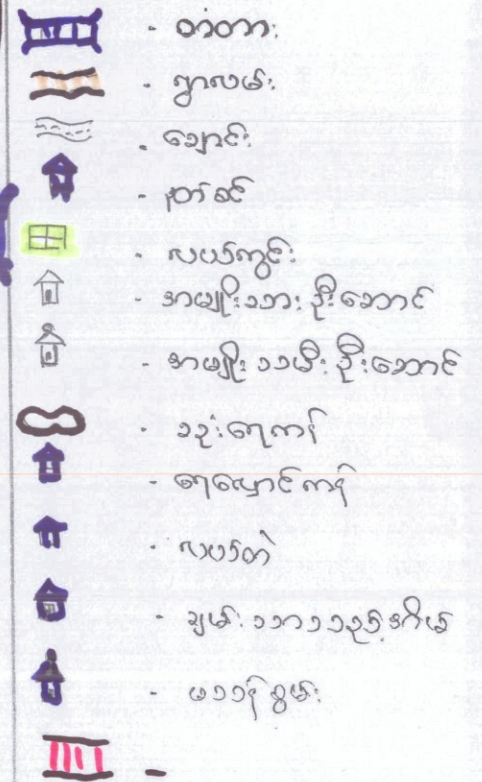 - တံတား
- ရွာလမ်း
- ချောင်း
- နတ်စင်
- လယ်ကွင်း
- အမျိုးသား ဦးဆောင်
- အမျိုးသမီး ဦးဆောင်
- သုံးရေကန်
- ရေလှောင်ကန်
- လယ်တဲ
- ချမ်းသာသည့်အိမ်
- မသန်စွမ်း
-